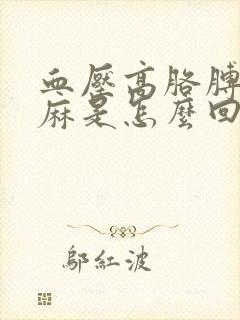 血壓高胳膊
麻是怎麼回
鄔紅波